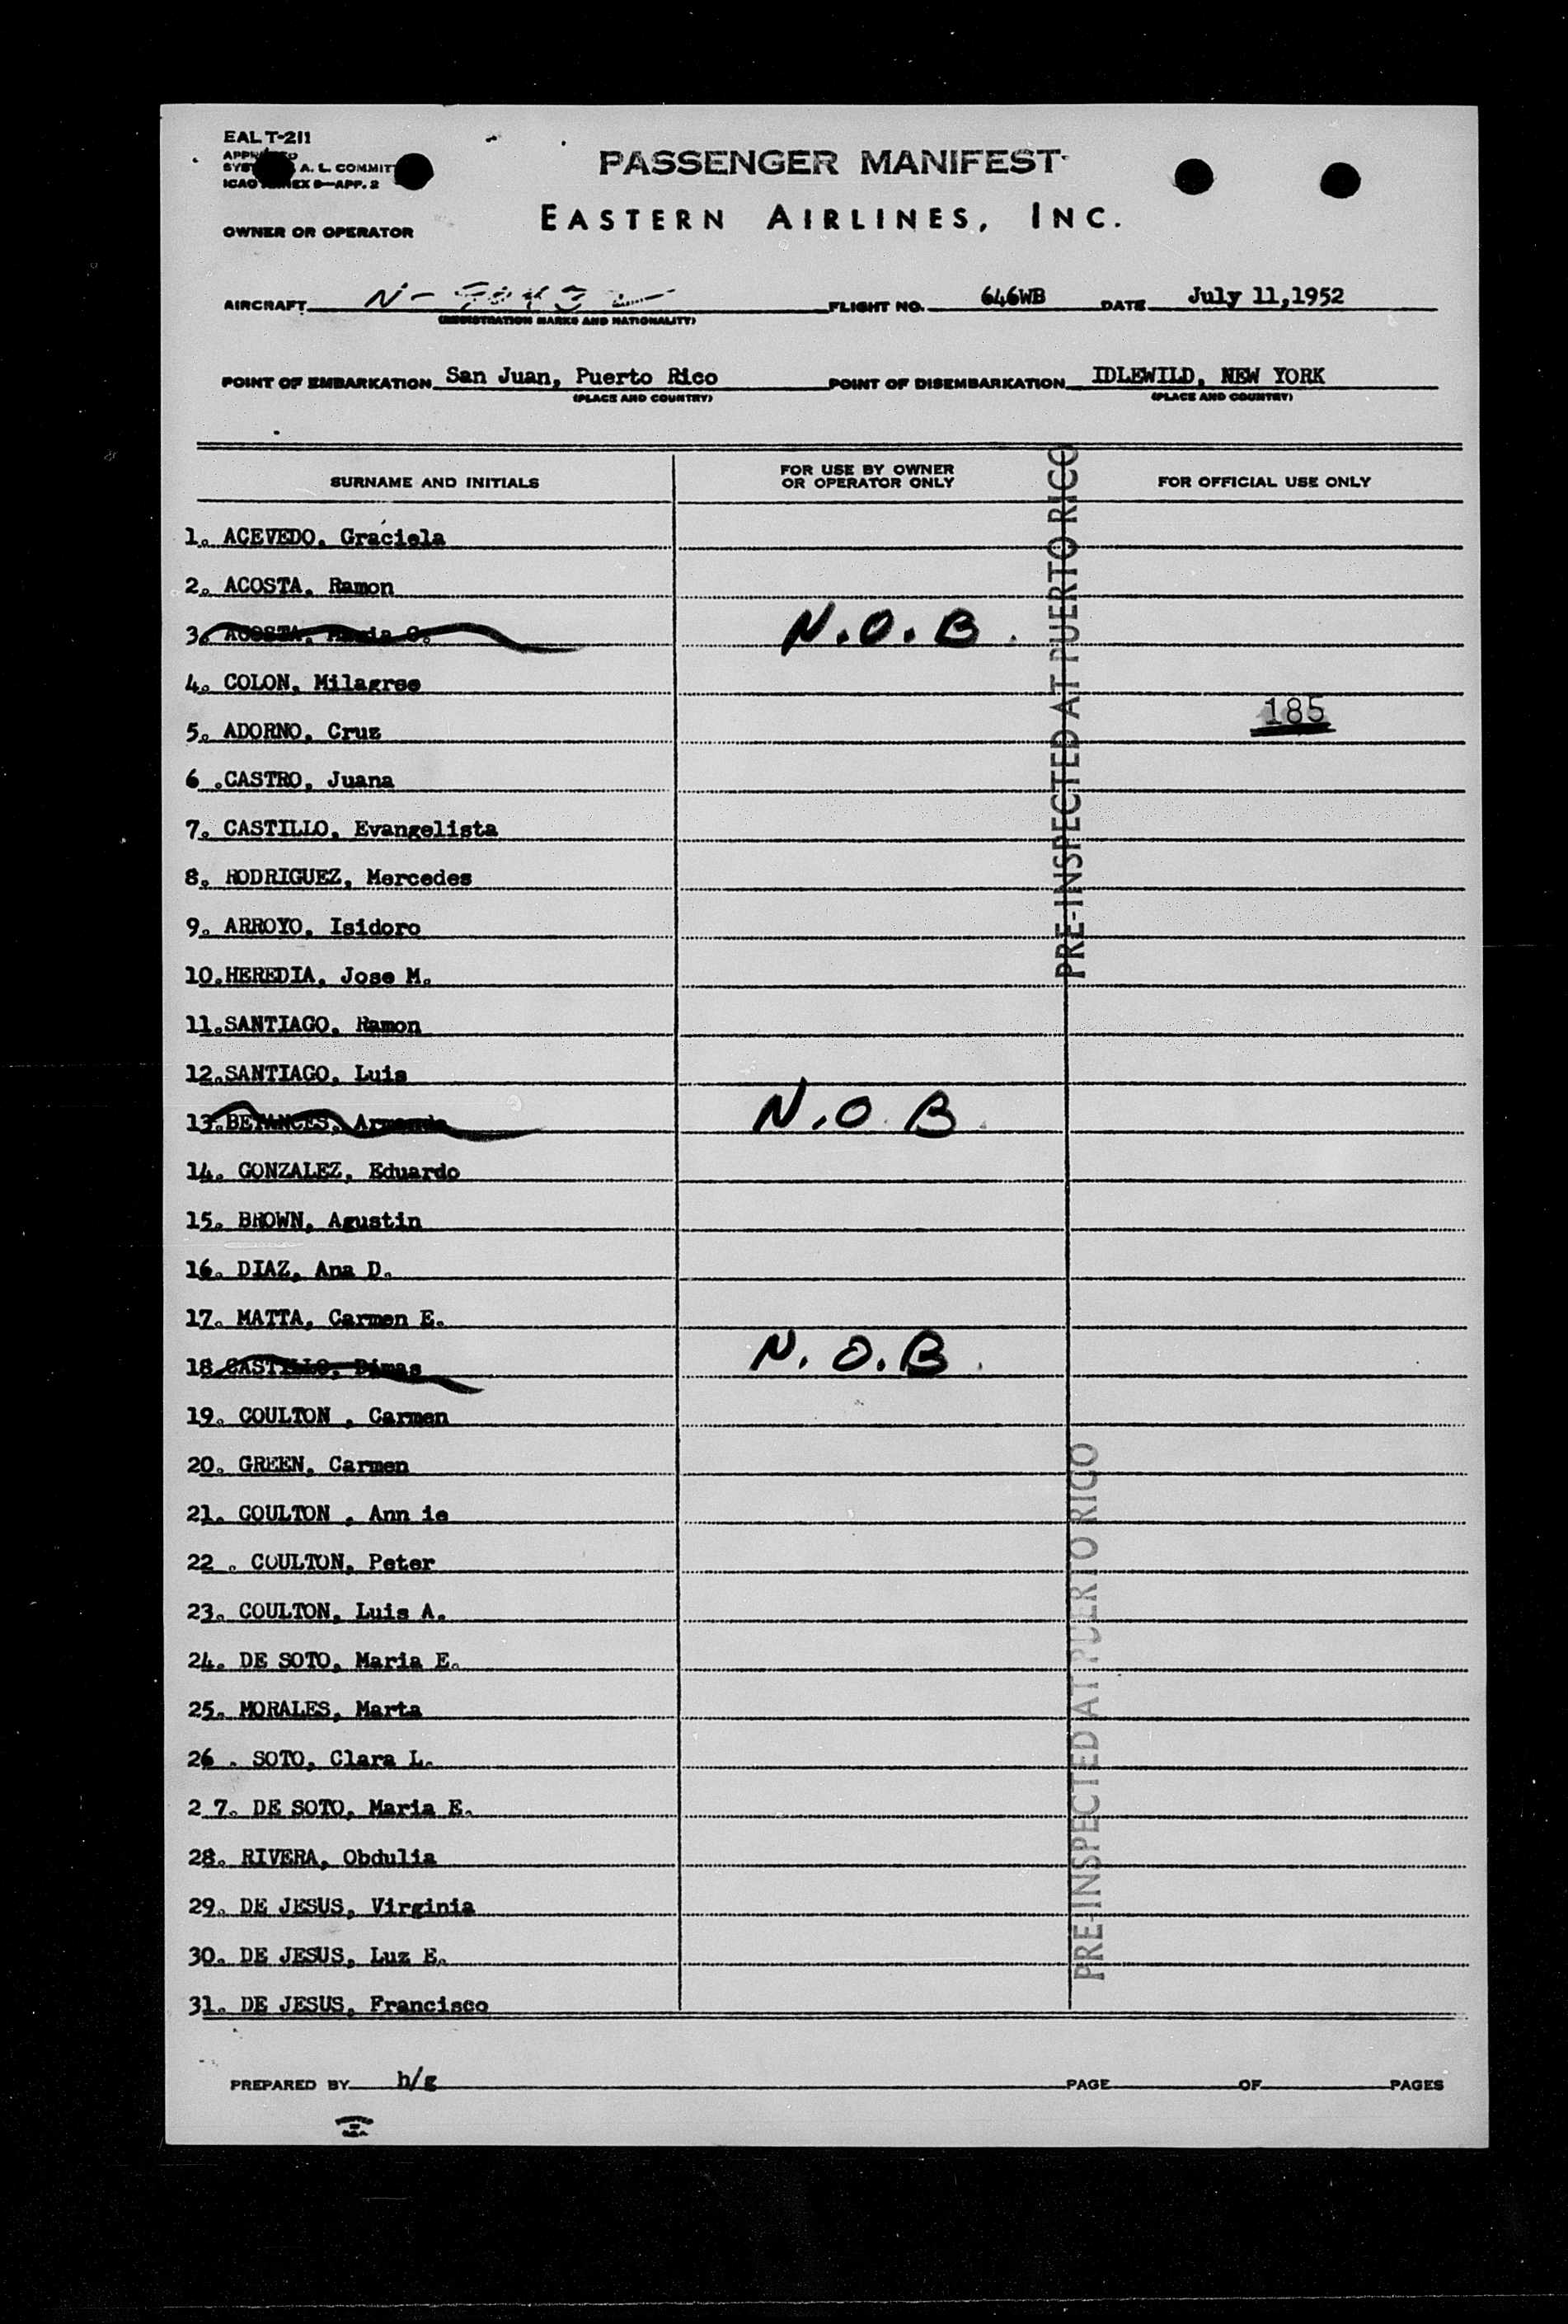 EAL T-211
PASSENGER MANIFEST
A. L. COMMIT
ICAO EX 9—APP. 2
EASTERN AIRLINES, INC.
OWNER OR OPERATOR
AIRCRAFT N- FLIGHT NO. 646WB DATE July 11,1952
(REGISTRATION MARKS AND NATIONALITY)
POINT OF EMBARKATION San Juan, Puerto Rico POINT OF DISEMBARKATION IDLEWILD, NEW YORK
(PLACE AND COUNTRY) (PLACE AND COUNTRY)
SURNAME AND INITIALS FOR USE BY OWNER OR OPERATOR ONLY FOR OFFICIAL USE ONLY
1. ACEVEDO, Graciela
2. ACOSTA, Ramon
3. ACOSTA, N.O.B.
4. COLON, Milagros
185
5. ADORNO, Cruz
6 .CASTRO, Juana
7. CASTILLO, Evangelista
8. RODRIGUEZ, Mercedes
9. ARROYO, Isidoro
10.HEREDIA, Jose M.
11.SANTIAGO, Ramon
12.SANTIAGO, Luis
13.BETANCES, N.O.B.
14. GONZALEZ, Eduardo
15. BROWN, Agustin
16. DIAZ, Ana D.
17. MATTA, Carmen E.
18 CASTILLO, Dimas N.O.B.
19. COULTON , Carmen
20. GREEN, Carmen
21. COULTON , Ann ie
22 . COULTON, Peter
23. COULTON, Luis A.
24. DE SOTO, Maria E.
25. MORALES, Marta
26 . SOTO, Clara L.
2 7. DE SOTO, Maria E.
28. RIVERA, Obdulia
29. DE JESUS, Virginia
30. DE JESUS, Luz E.
31. DE JESUS, Francisco
PRE-INSPECTED AT PUERTO RICO
PRE-INSPECTED AT PUERTO RICO
PREPARED BY h/g PAGE OF PAGES